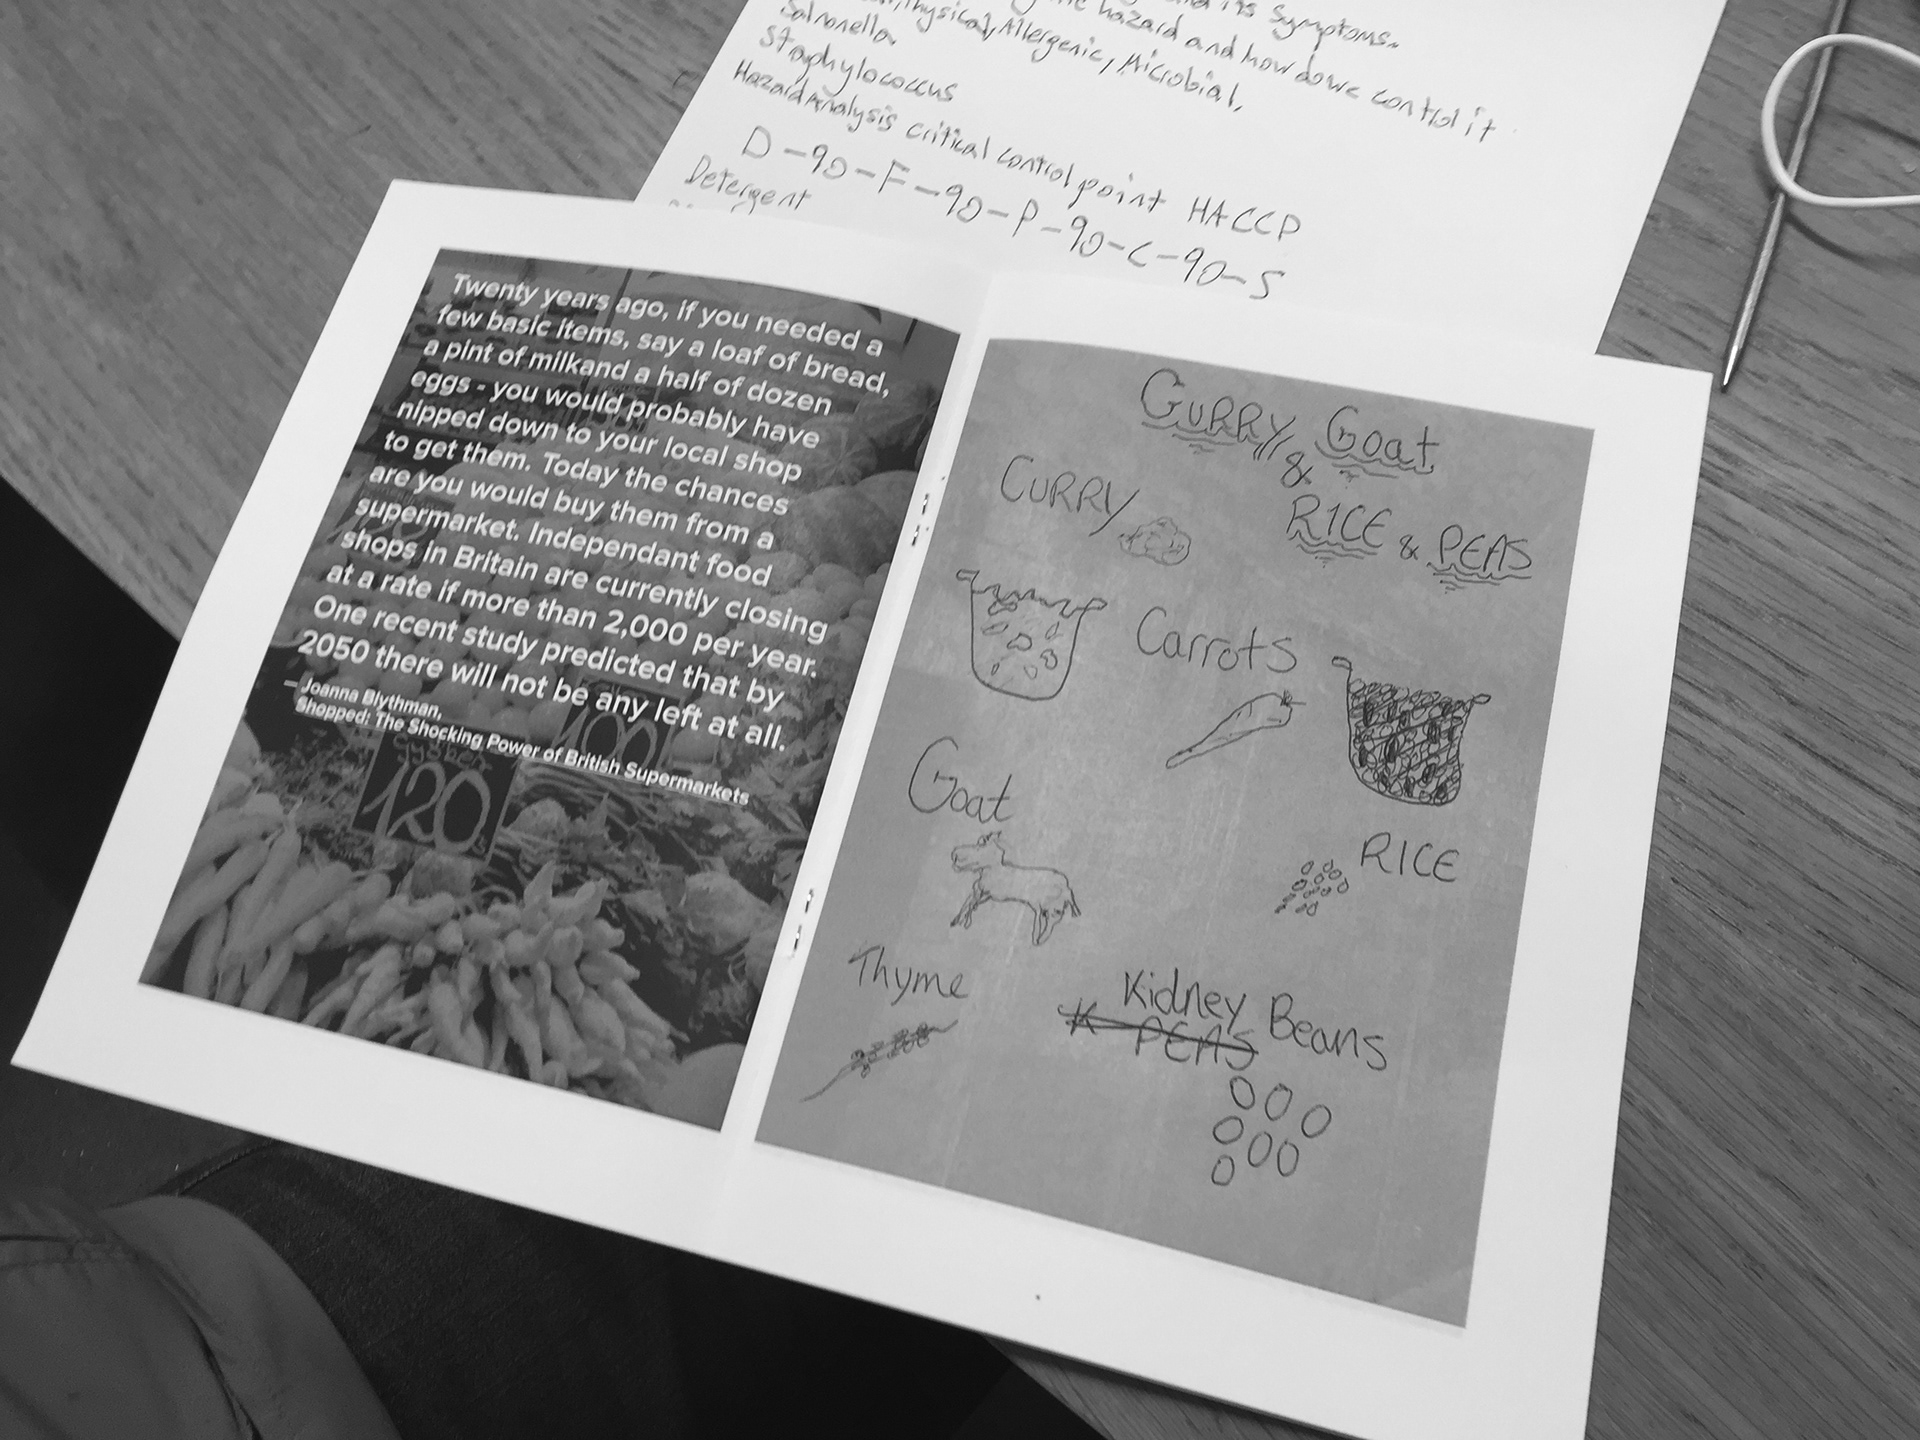 its symptoms.
hazard and how dowe control it
Physical, Allergenic, Microbial,
Salmonella
Staphylococcus
Hazard Analysis critical control point HACCP
D-90-F-90-P-90-C-90-S
Detergent
Twenty years ago, if you needed a
few basic items, say a loaf of bread,
a pint of milkand a half of dozen
eggs - you would probably have
nipped down to your local shop
to get them. Today the chances
are you would buy them from a
supermarket. Independant food
shops in Britain are currently closing
at a rate if more than 2,000 per year.
One recent study predicted that by
2050 there will not be any left at all.
– Joanna Blythman,
Shopped: The Shocking Power of British Supermarkets
100
120
CURRY Goat
&
RICE & PEAS
CURRY
Carrots
Goat
RICE
Thyme
Kidney Beans
K PEAS